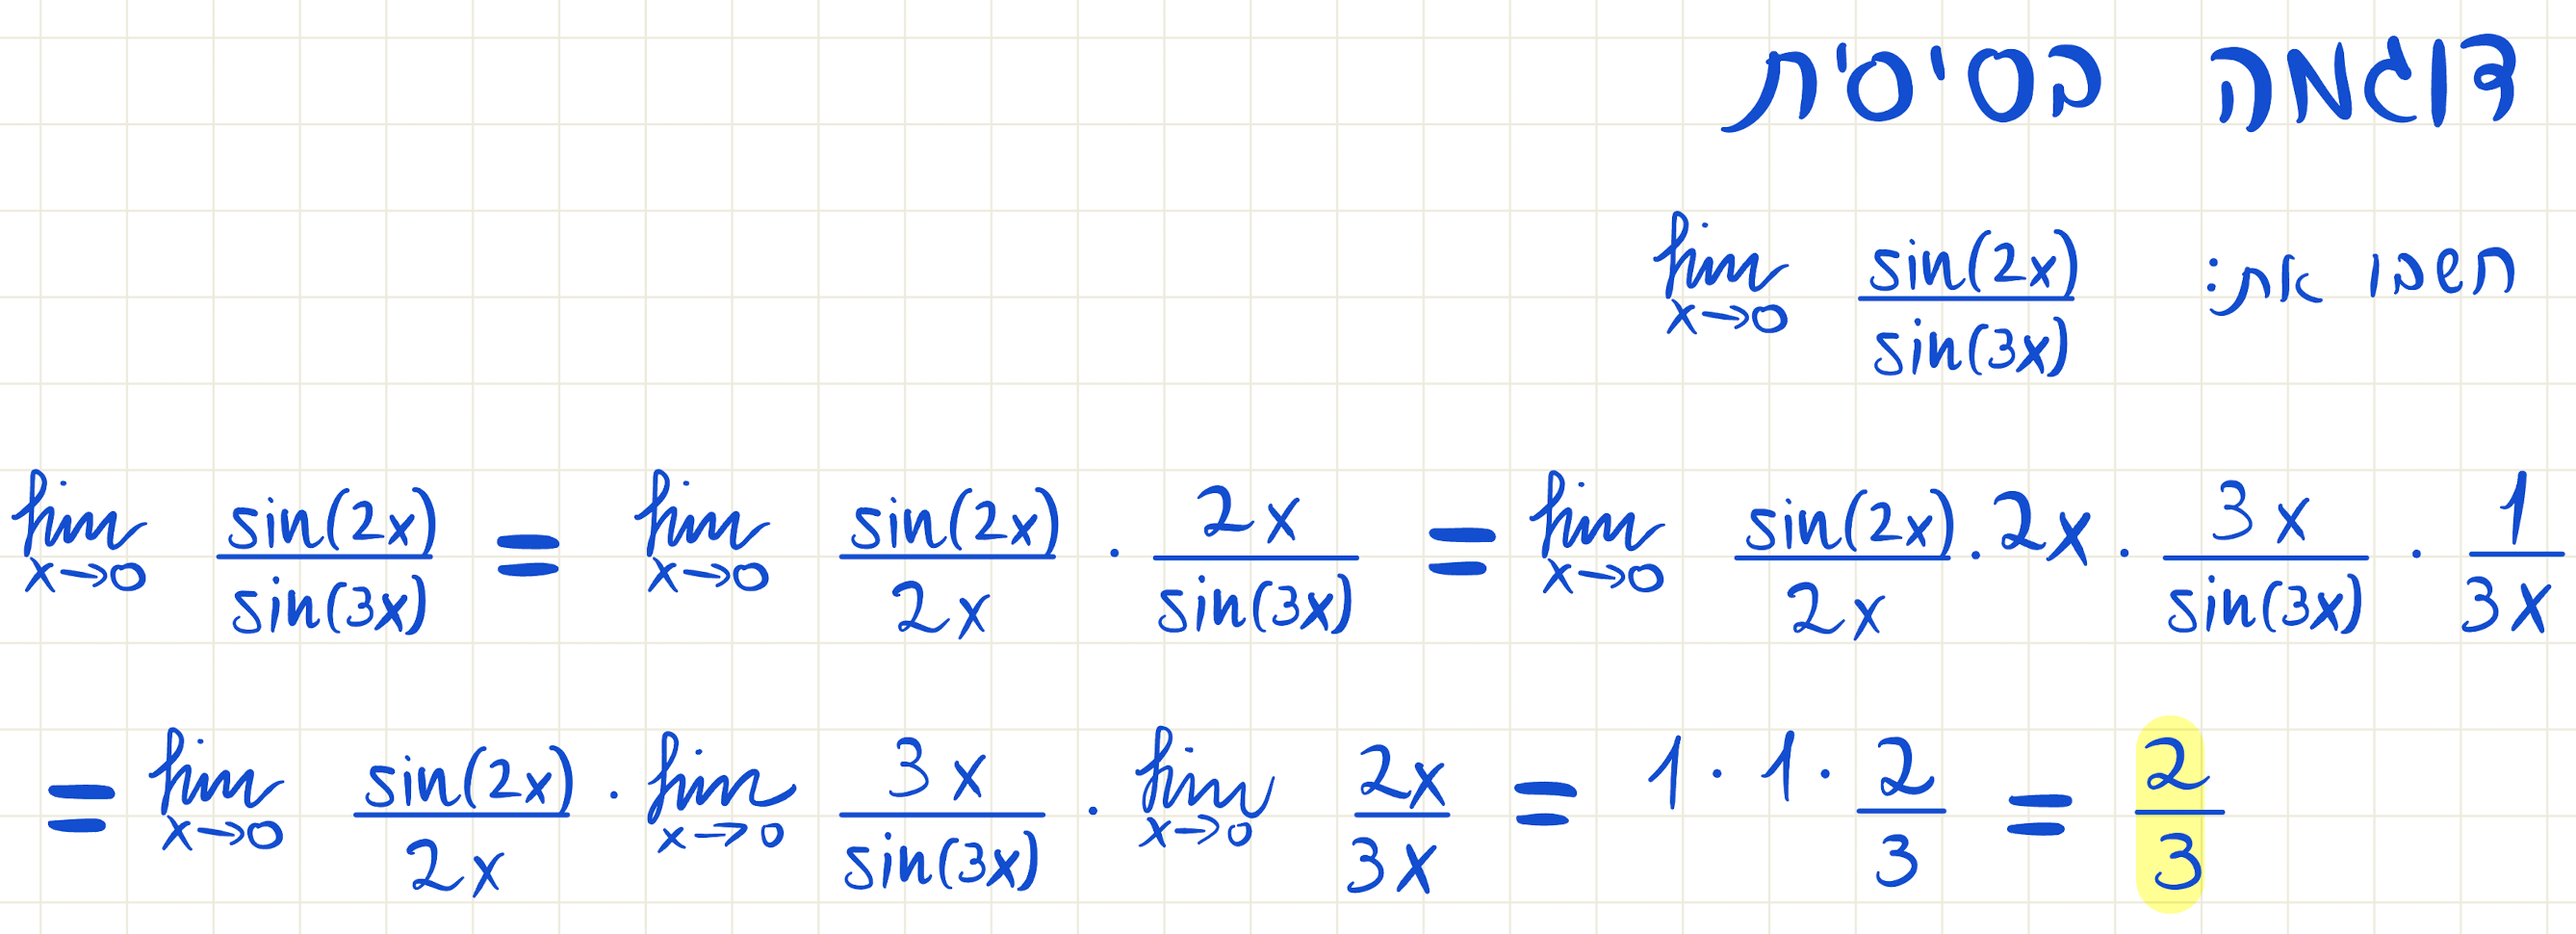 דוגמה בסיסית
חשבו את: lim_{x→0} sin(2x)/sin(3x)
lim_{x→0} sin(2x)/sin(3x) = lim_{x→0} sin(2x)/2x · 2x/sin(3x) = lim_{x→0} sin(2x)/2x · 2x · 3x/sin(3x) · 1/3x
= lim_{x→0} sin(2x)/2x · lim_{x→0} 3x/sin(3x) · lim_{x→0} 2x/3x = 1 · 1 · 2/3 = 2/3